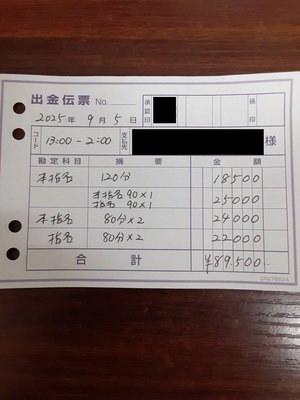 出金伝票 No.
承認印
係印
2025年 9月 5日
コード 13:00 - 2:00 支払先 様
勘定科目 摘要 金額
本指名 120分 18500
本指名 90×1
指名 90×1 25000
本指名 80分×2 24000
指名 80分×2 22000
合計 ¥89,500.-